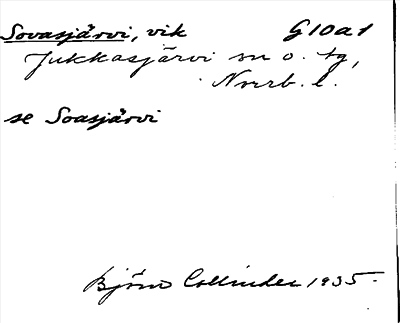 Sovasjärvi, vik G10a1
Jukkasjärvi sn o. tg,
Nrrb. l.
se Soasjärvi
Björn Collinder 1935.